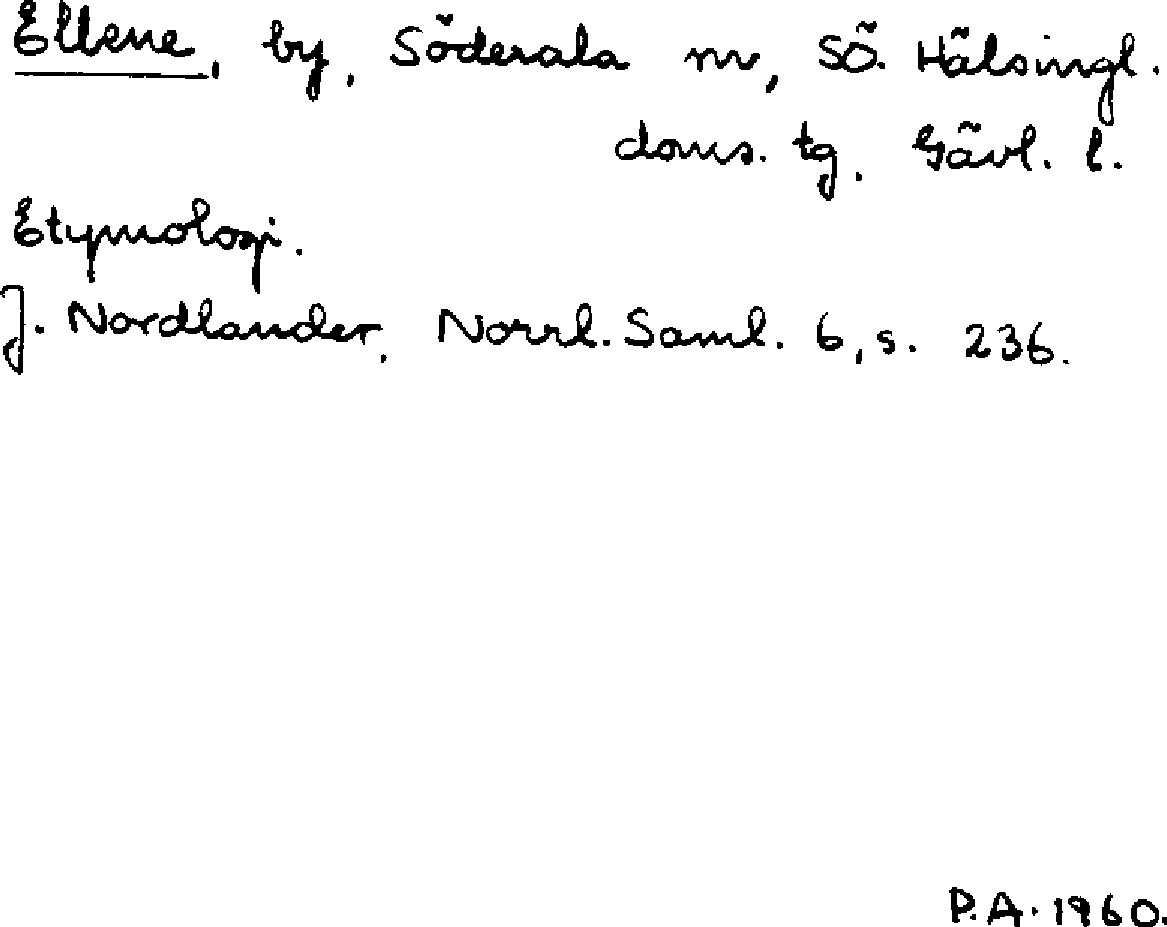 Ellene, by, Söderala sn, Sö. Hälsingl.
doms. tg. Gävl. l.
Etymologi.
J. Nordlander, Norrl. Saml. 6, s. 236.
P.A. 1960.